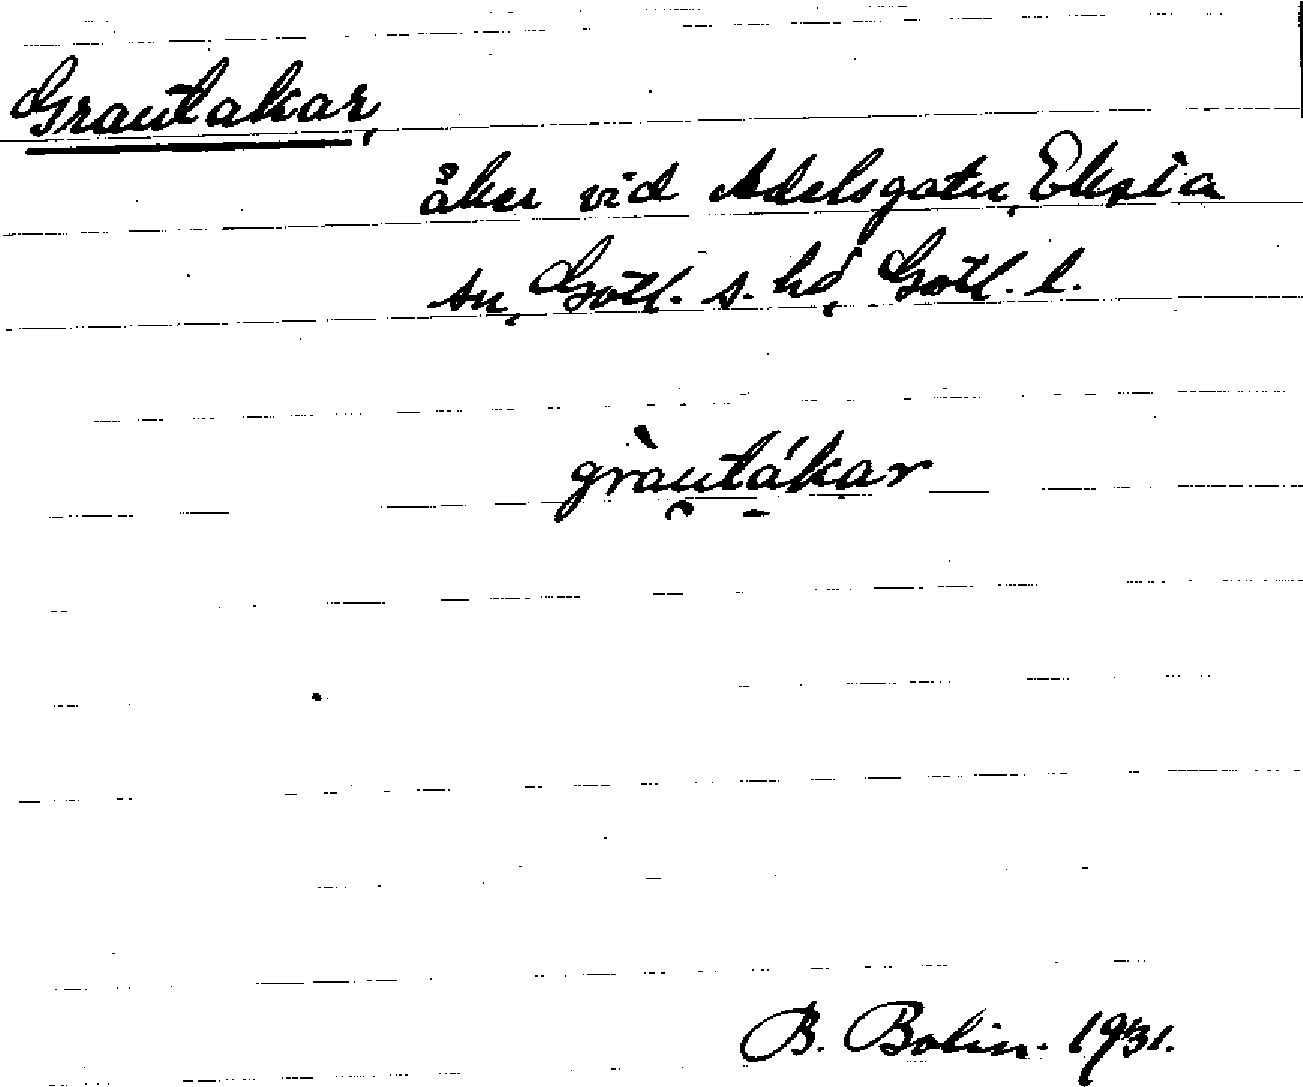 Grautakar,
åker vid Adelsgatu, Eksta
sn, Gotl. s. hd, Gotl. l.
gràutákar
B. Bolin. 1931.